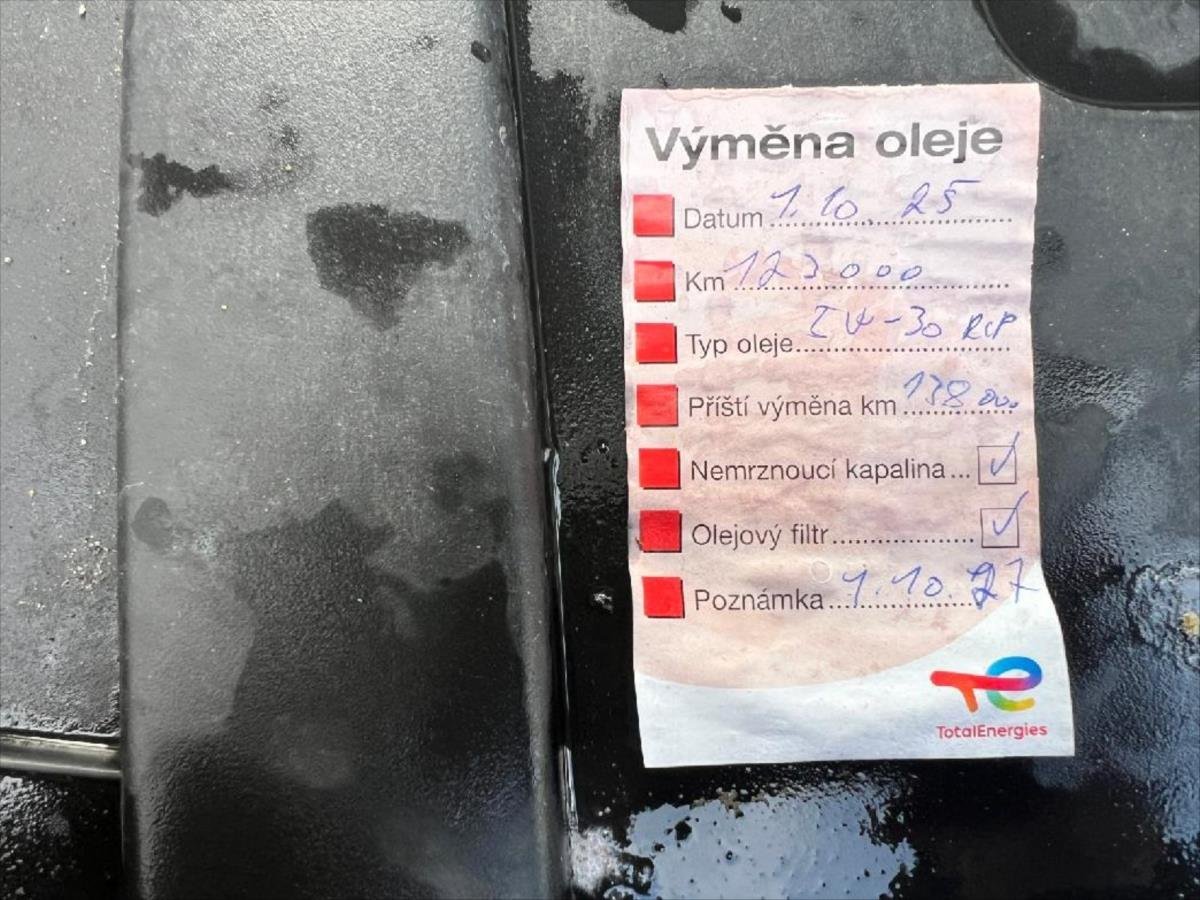 Výměna oleje
Datum 1.10.25
Km 123000
Typ oleje -30
Příští výměna km 138000
Nemrznoucí kapalina... ✓
Olejový filtr ✓
Poznámka 1.10.27
TotalEnergies